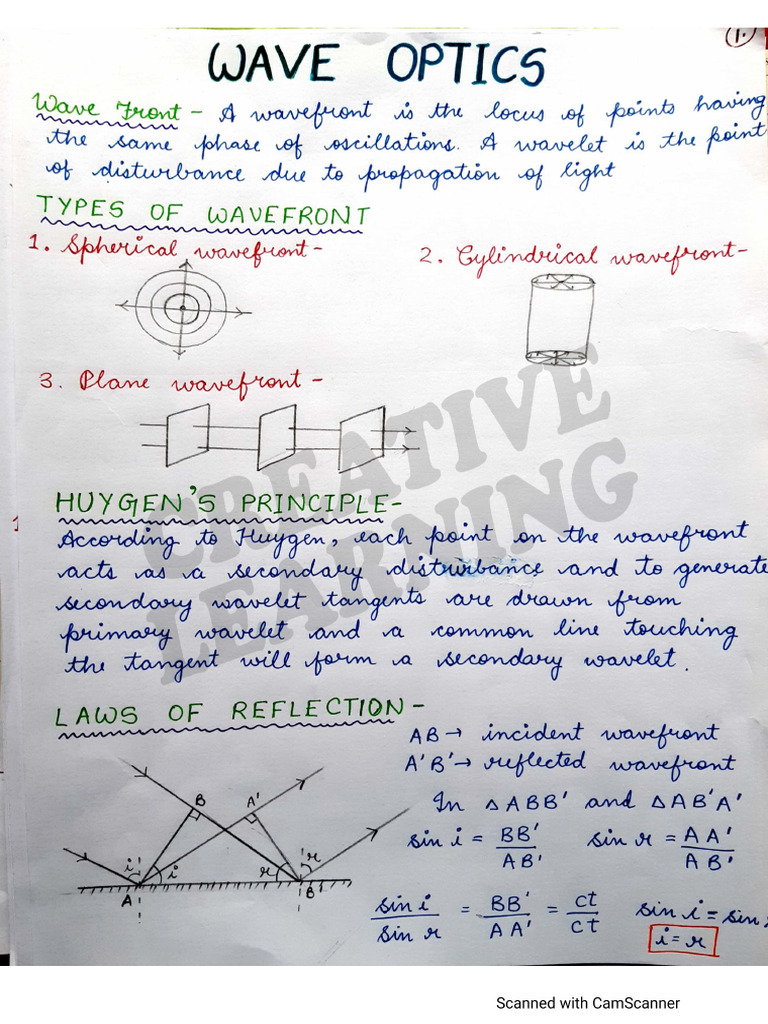 1.
WAVE OPTICS
Wave Front - A wavefront is the locus of points having
the same phase of oscillations. A wavelet is the point
of disturbance due to propagation of light
TYPES OF WAVEFRONT
1. Spherical wavefront -
2. Cylindrical wavefront -
3. Plane wavefront -
CREATIVE
LEARNING
HUYGEN'S PRINCIPLE -
According to Huygen, each point on the wavefront
acts as a secondary disturbance and to generate
secondary wavelet tangents are drawn from
primary wavelet and a common line touching
the tangent will form a secondary wavelet.
LAWS OF REFLECTION -
AB → incident wavefront
A'B' → reflected wavefront
In △ABB' and △AB'A'
sin i = BB'/AB' sin r = AA'/AB'
sin i/sin r = BB'/AA' = ct/ct sin i = sin
i = r
B A'
i i r r
A B'
Scanned with CamScanner